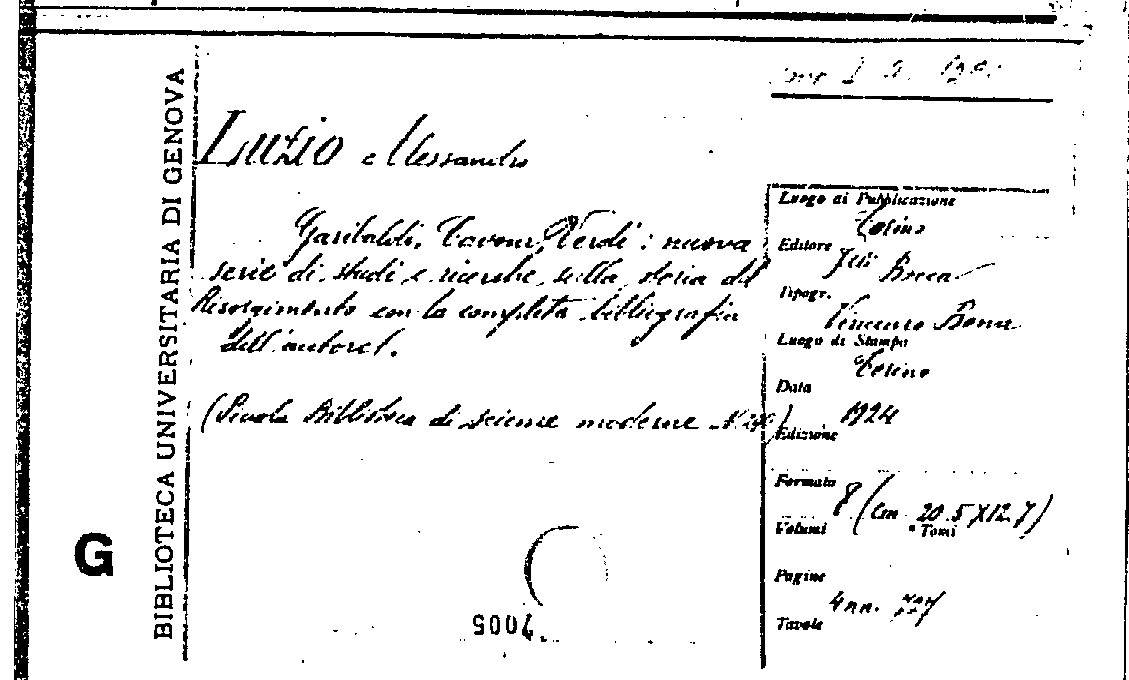 BIBLIOTECA UNIVERSITARIA DI GENOVA
G
Luzio Alessandro
Garibaldi, Cavour, Verdi: nuova
serie di studi e ricerche sulla storia del
Risorgimento con la completa bibliografia
dell'autore.
(Piccola Biblioteca di scienze moderne N.
Luogo di Pubblicazione
Torino
Editore
Flli Bocca
Tipogr.
Vincenzo Bona
Luogo di Stampa
Torino
Data
1924
Edizione
Formato
8 (cm 20.5X12.7)
Volumi
Tomi
Pagine
4nn.
Tavole
7005